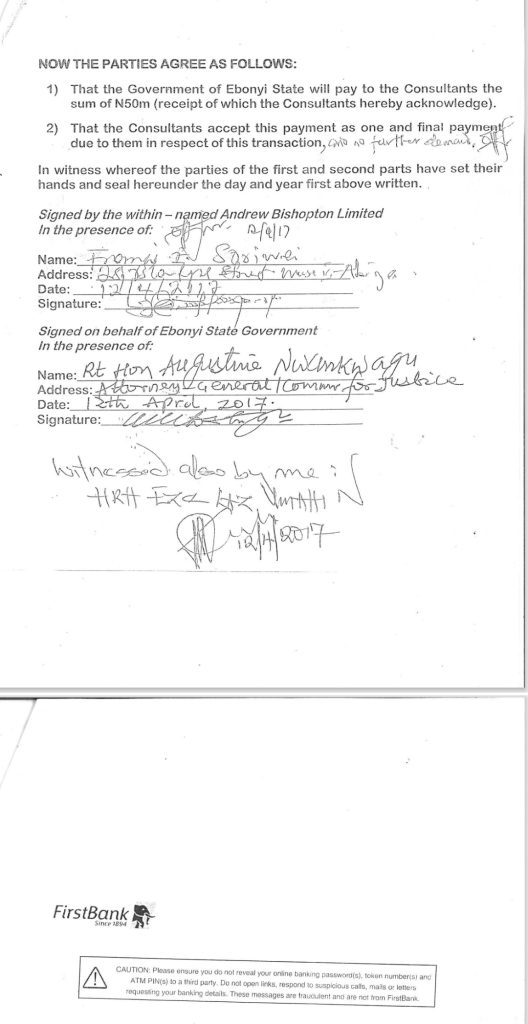 NOW THE PARTIES AGREE AS FOLLOWS:
1) That the Government of Ebonyi State will pay to the Consultants the
sum of N50m (receipt of which the Consultants hereby acknowledge).
2) That the Consultants accept this payment as one and final payment
due to them in respect of this transaction, and no further demand.
In witness whereof the parties of the first and second parts have set their
hands and seal hereunder the day and year first above written.
Signed by the within – named Andrew Bishopton Limited
In the presence of: 12/4/17
Name:
Address: Street
Date: 12/4/2017
Signature:
Signed on behalf of Ebonyi State Government
In the presence of:
Name: Rt Hon Augustine Nwankwagu
Address: Attorney General/Commr for Justice
Date: 12th April, 2017.
Signature:
Witnessed also by me:
HRH Exc Umahi N
12/4/2017
FirstBank
Since 1894
CAUTION: Please ensure you do not reveal your online banking password(s), token number(s) and
ATM PIN(s) to a third party. Do not open links, respond to suspicious calls, mails or letters
requesting your banking details. These messages are fraudulent and are not from FirstBank.